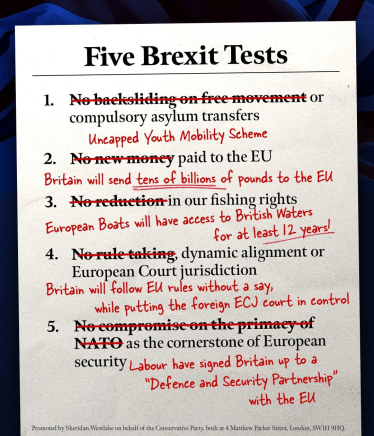 Five Brexit Tests
1. No backsliding on free movement or
compulsory asylum transfers
Uncapped Youth Mobility Scheme
2. No new money paid to the EU
Britain will send tens of billions of pounds to the EU
3. No reduction in our fishing rights
European Boats will have access to British Waters
for at least 12 years!
4. No rule taking, dynamic alignment or
European Court jurisdiction
Britain will follow EU rules without a say,
while putting the foreign ECJ court in control
5. No compromise on the primacy of
NATO as the cornerstone of European
security Labour have signed Britain up to a
"Defence and Security Partnership"
with the EU
Promoted by Sheridan Westlake on behalf of the Conservative Party, both at 4 Matthew Parker Street, London, SW1H 9HQ.